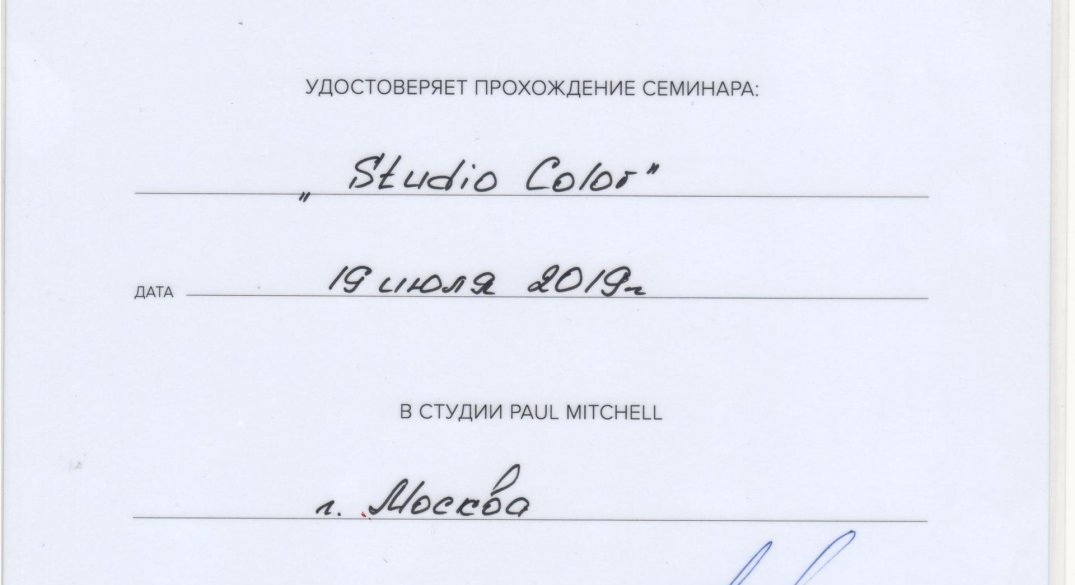 УДОСТОВЕРЯЕТ ПРОХОЖДЕНИЕ СЕМИНАРА:
„Studio Color"
ДАТА 19 июля 2019г
В СТУДИИ PAUL MITCHELL
г. Москва